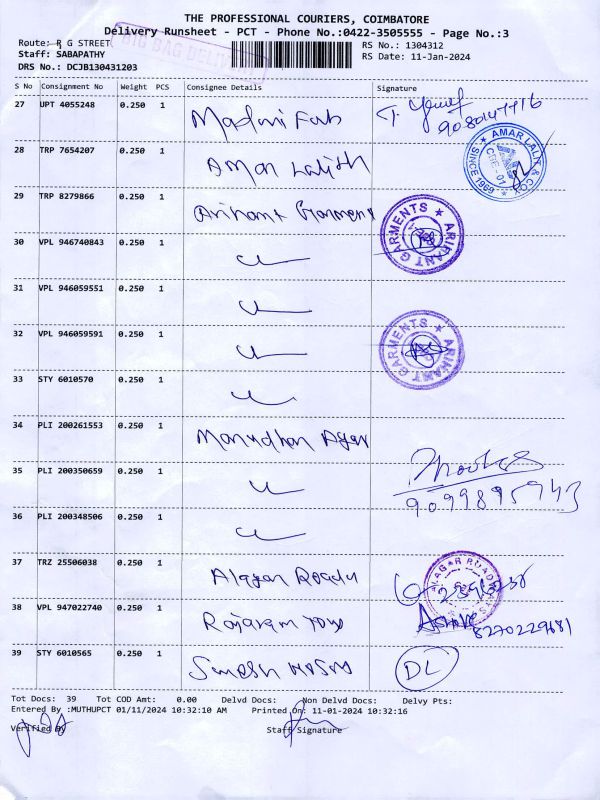 THE PROFESSIONAL COURIERS, COIMBATORE
Delivery Runsheet - PCT - Phone No.:0422-3505555 - Page No.:3
Route: R G STREET
Staff: SABAPATHY
DRS No.: DCJB130431203
BIG BAG DELIVERY
RS No.: 1304312
RS Date: 11-Jan-2024
S No Consignment No Weight PCS Consignee Details Signature
27 UPT 4055248 0.250 1 Madani Fab
9080147716
28 TRP 7654207 0.250 1 Aman Lalith
AMAR LALIT & CO
CBE-01
SINCE 1969
29 TRP 8279866 0.250 1 Arihant Garments
ARIHANT GARMENTS
30 VPL 946740843 0.250 1
31 VPL 946059551 0.250 1
32 VPL 946059591 0.250 1
ARIHANT GARMENTS
33 STY 6010570 0.250 1
34 PLI 200261553 0.250 1
35 PLI 200350659 0.250 1
9099895943
36 PLI 200348506 0.250 1
37 TRZ 25506038 0.250 1
38 VPL 947022740 0.250 1 Rajaram
8270229681
39 STY 6010565 0.250 1
DL
Tot Docs: 39 Tot COD Amt: 0.00 Delvd Docs: Non Delvd Docs: Delvy Pts:
Entered By :MUTHUPCT 01/11/2024 10:32:10 AM Printed On: 11-01-2024 10:32:16
Verified By Staff Signature